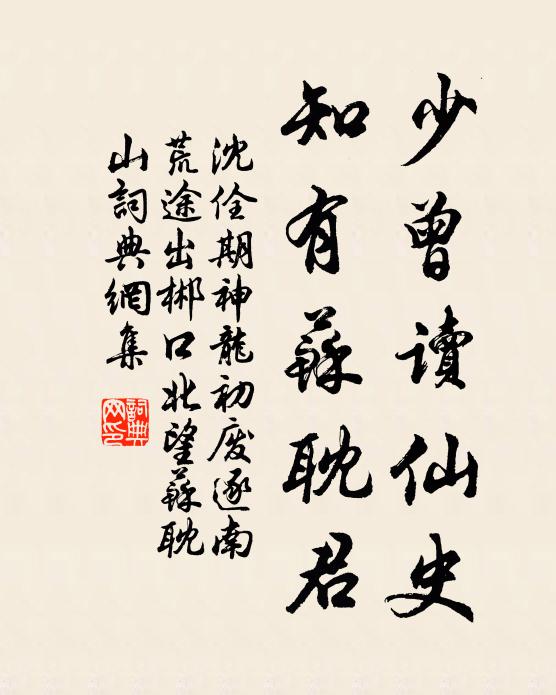 少曾讀仙史
知有蘇耽君
沈佺期神龍初廢逐南
荒途出郴口北望蘇耽
山詞典網集
詞典
网印